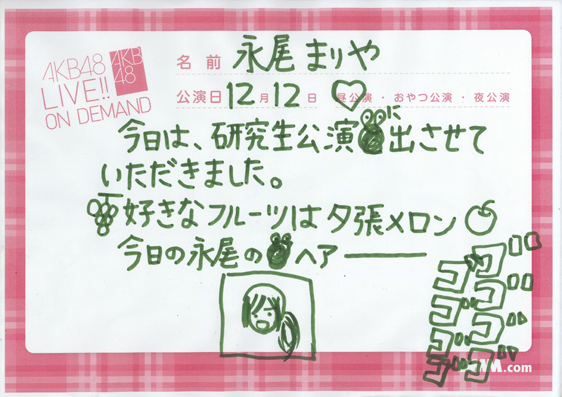 AKB48
LIVE!!
ON DEMAND
AKB
48
名前 永尾まりや
公演日 12月12日 昼公演・おやつ公演・夜公演
今日は、研究生公演に出させて
いただきました。
好きなフルーツは夕張メロン
今日の永尾のヘアー
ゴゴゴゴゴゴゴ
.com